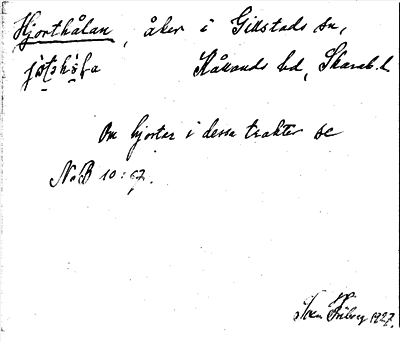 Hjorthålan, åker i Gillstads sn,
Kållands hd, Skarab. l.
Om hjortar i dessa trakter se
NoB 10:67.
Sven Friberg 1927.